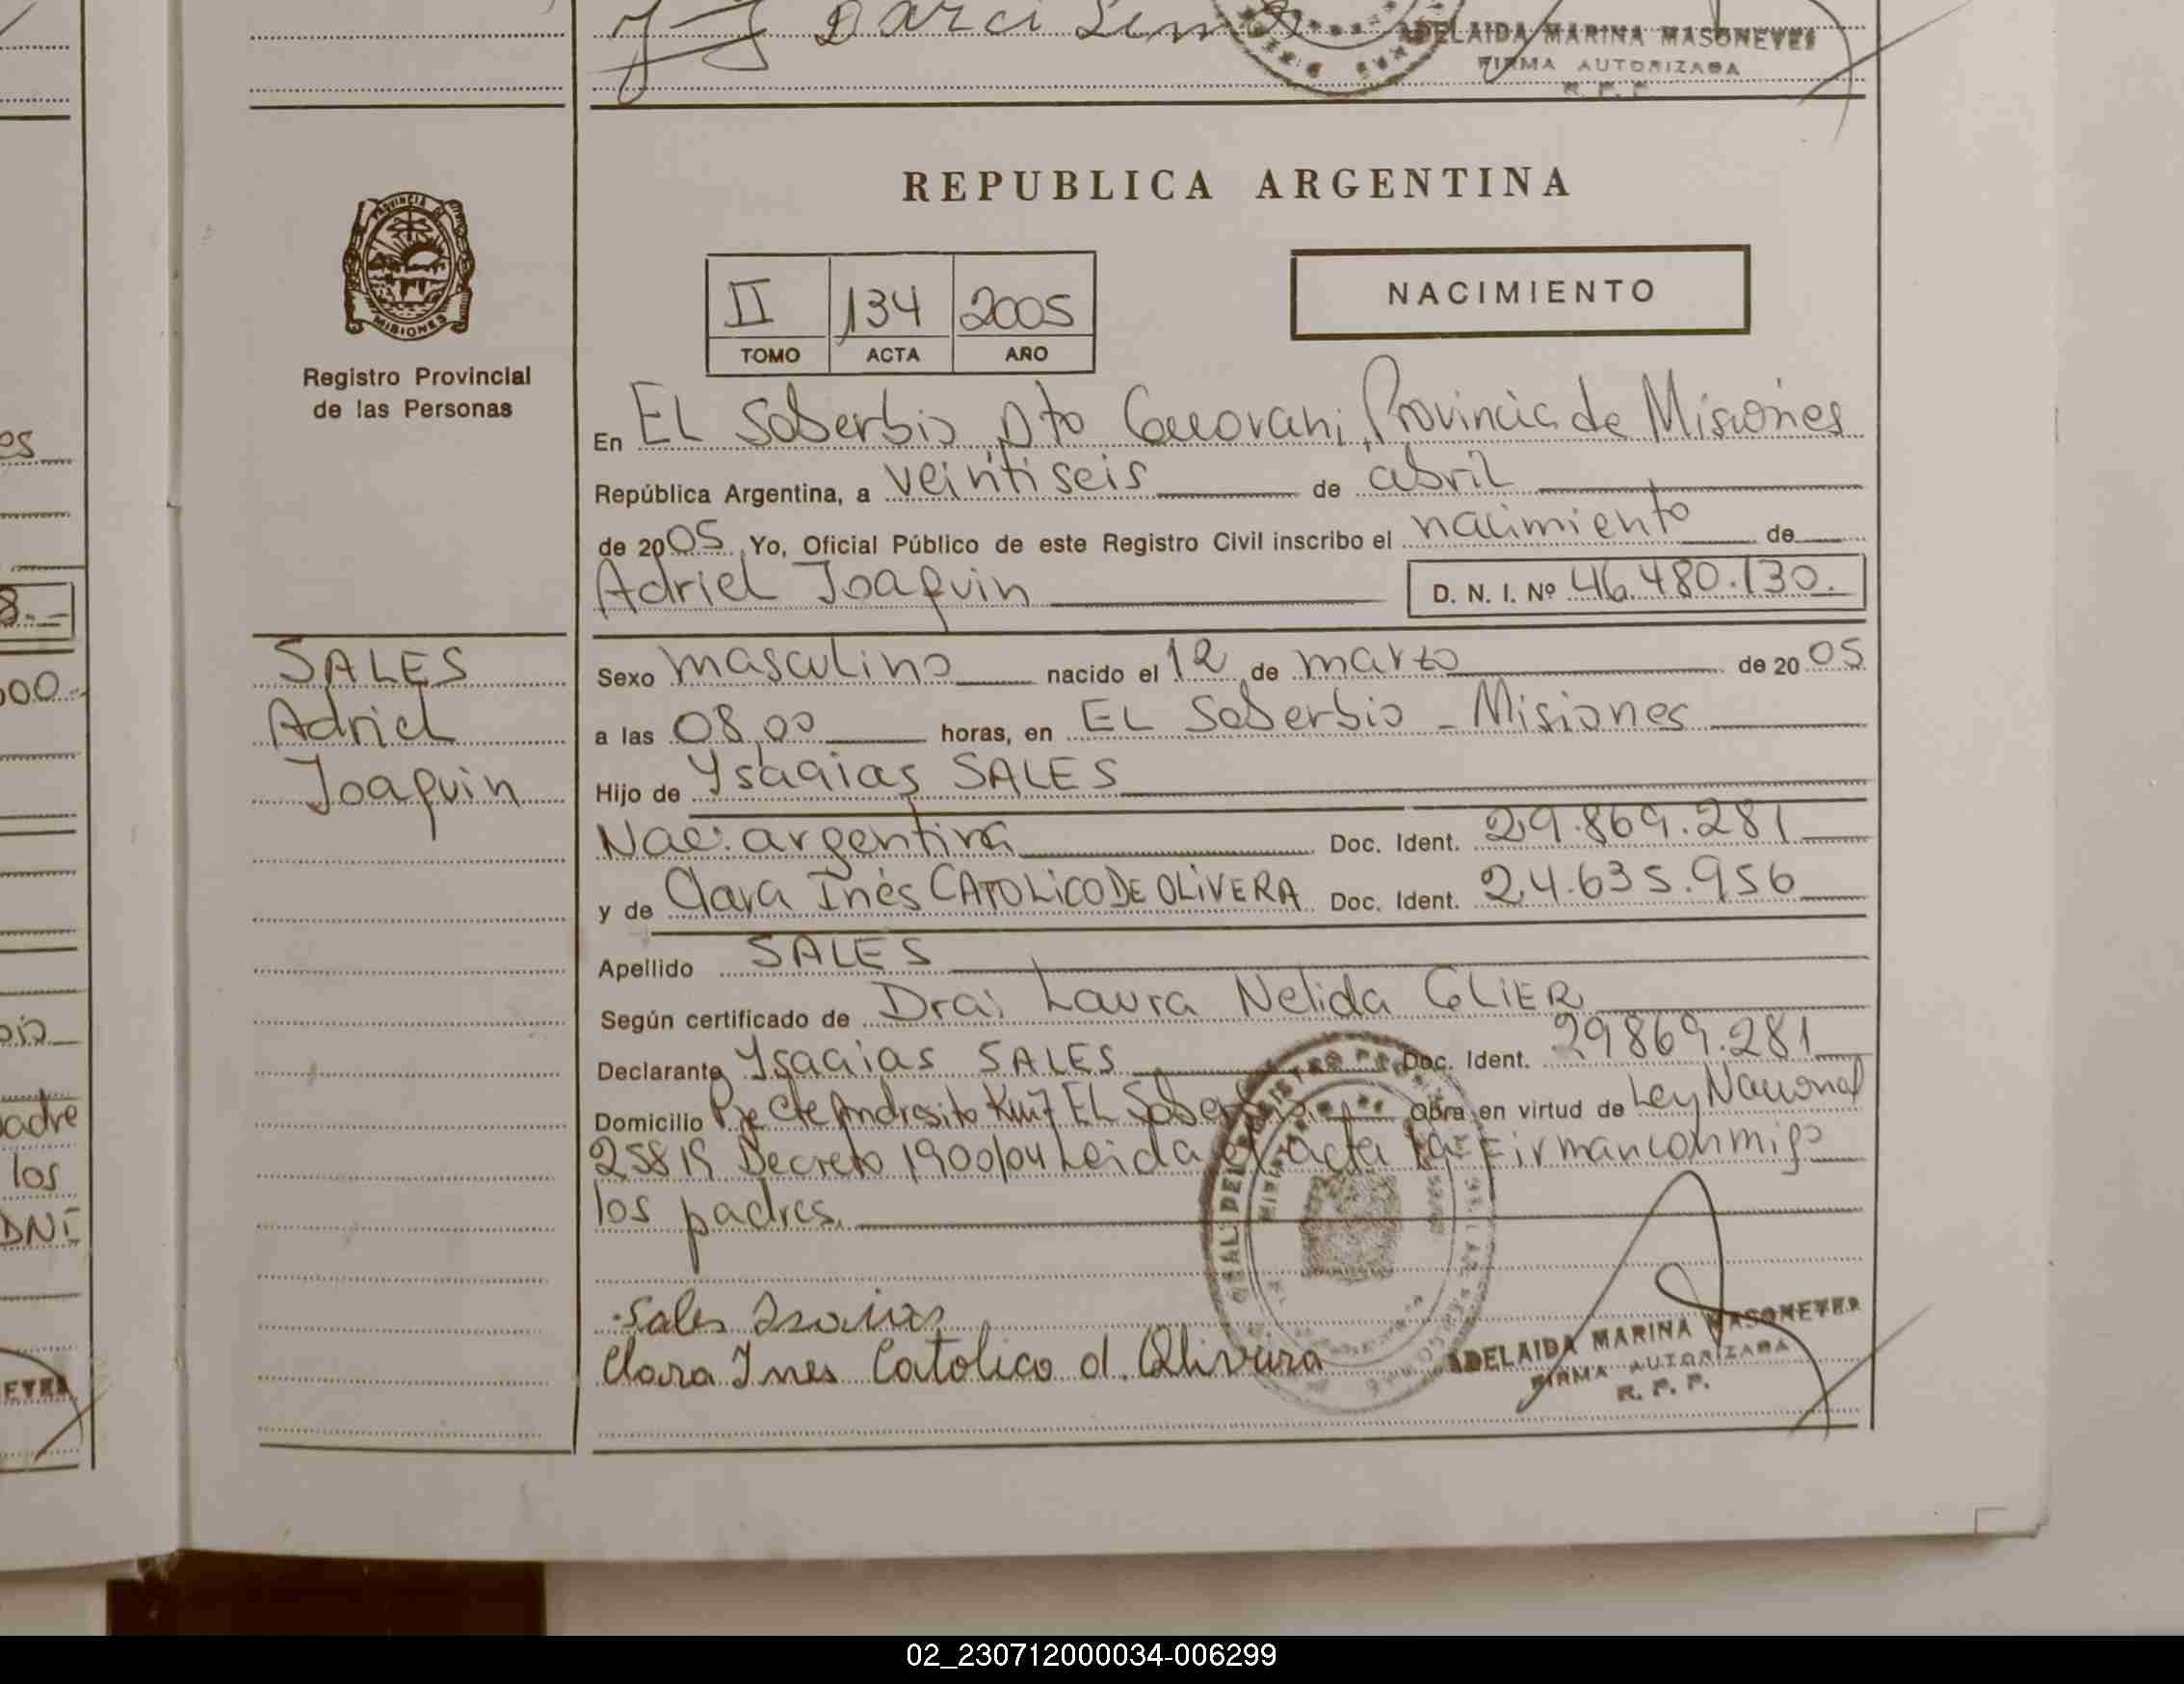 Darci
ADELAIDA MARINA MASONEYER
FIRMA AUTORIZADA
R. P. P.
REPUBLICA ARGENTINA
PROVINCIA DE
MISIONES
Registro Provincial
de las Personas
II 134 2005
TOMO ACTA AÑO
NACIMIENTO
En EL Soberbio Dto Guarani, Provincia de Misiones
República Argentina, a veintiseis de abril
de 2005 Yo, Oficial Público de este Registro Civil inscribo el nacimiento de
Adriel Joaquin D. N. I. Nº 46.480.130.
SALES
Adriel
Joaquin
Sexo masculino nacido el 12 de marzo de 2005
a las 08,00 horas, en EL Soberbio - Misiones
Hijo de Ysaaias SALES
Nac: argentina Doc. Ident. 29.869.281
y de Clara Inés CATOLICO DE OLIVERA Doc. Ident. 24.635.956
Apellido SALES
Según certificado de Dra: Laura Nelida GLIER
Declarante Ysaaias SALES Doc. Ident. 29869.281
Domicilio Pje Cte Andresito Km7 EL Soberbio Obra en virtud de Ley Nacional
25819 Decreto 1900/04 Leida el acta la Firman conmigo
los padres.
Sales Isaias
Clara Ines Catolico d. Olivera
ADELAIDA MARINA MASONEYER
FIRMA AUTORIZADA
R. P. P.
es
8.-
00
bio
adre
los
DNI
02_230712000034-006299